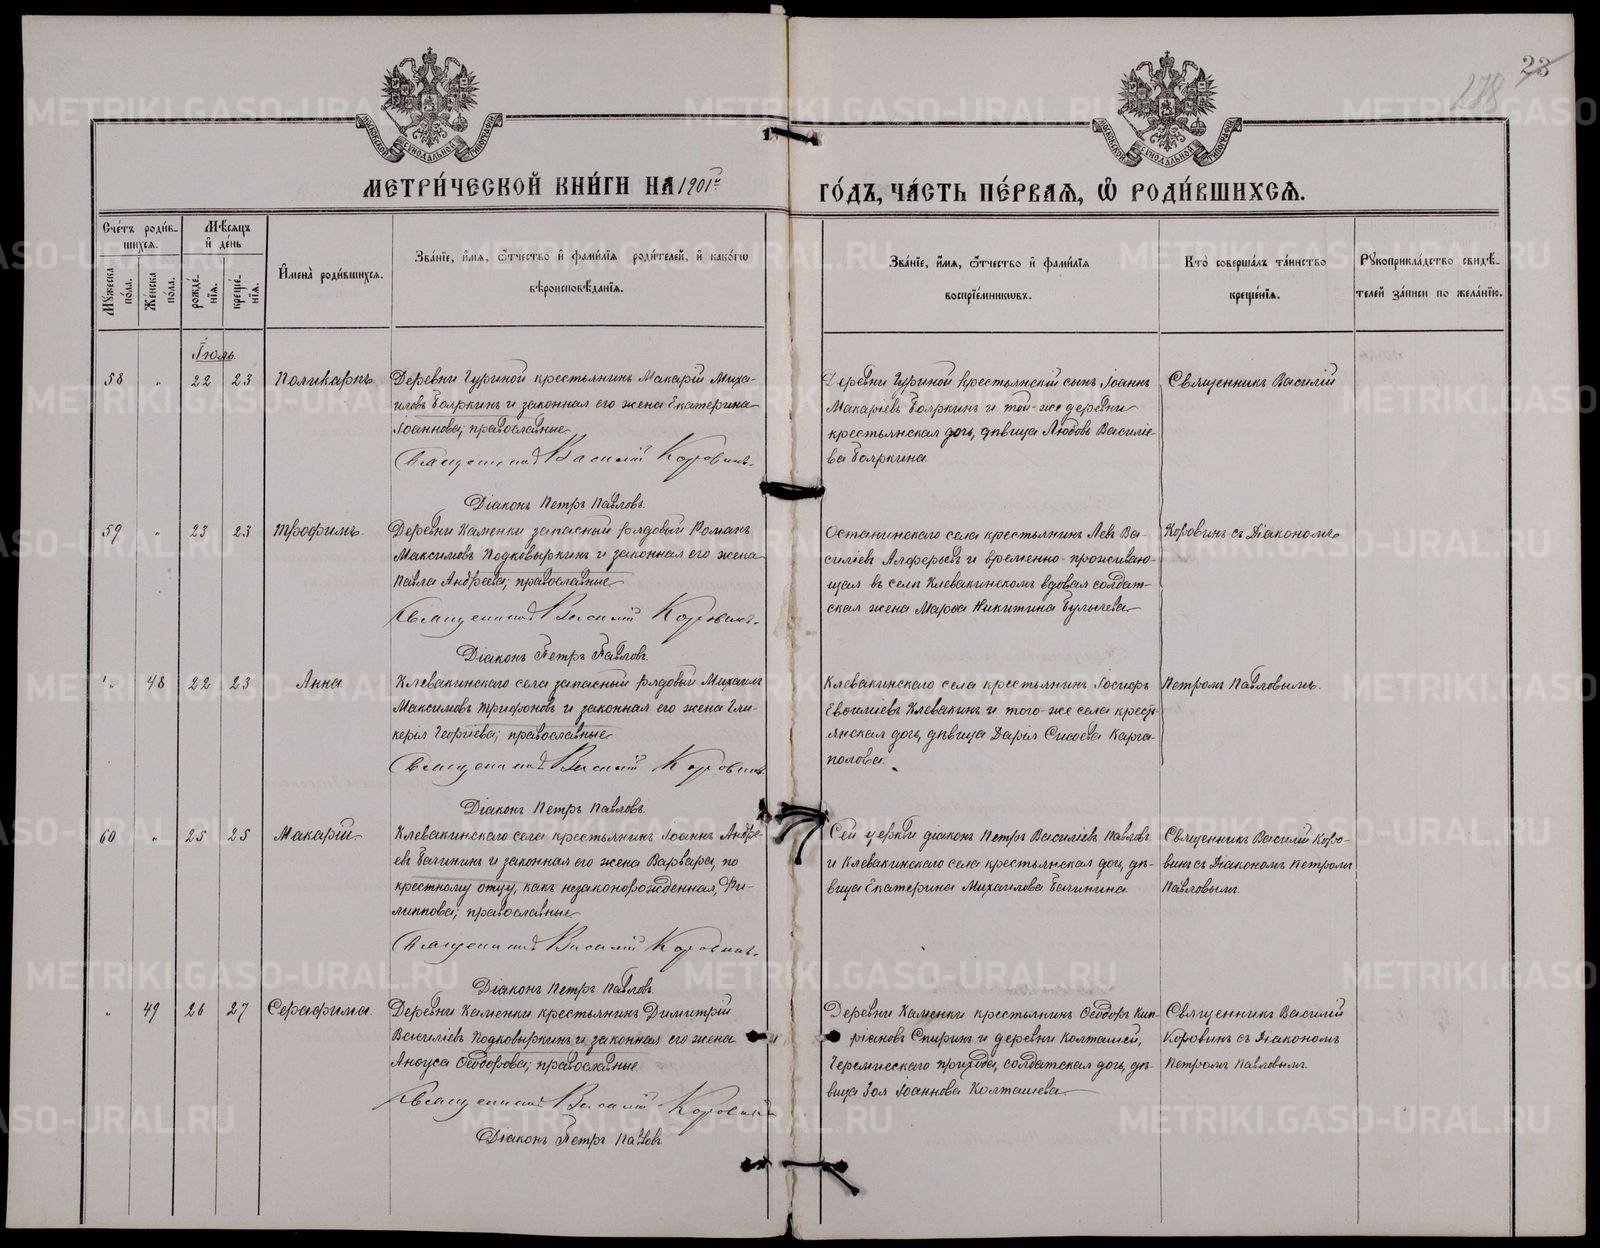 23
278
МОСКОВСКОЙ СѴНОДАЛЬНОЙ ТИПОГРАФІИ
МОСКОВСКОЙ СѴНОДАЛЬНОЙ ТИПОГРАФІИ
МЕТРИ́ЧЕСКОЙ КНИ́ГИ НА 1901й
ГО́ДЪ, ЧА́СТЬ ПЕ́РВАѦ, Ѡ҆ РОДИ́ВШИХСѦ.
Сче́тъ роди́в-
шихсѧ.
Мꙋ́жеска по́ла.
Же́нска по́ла.
Мѣ́сѧцъ
и҆ де́нь
рожде́-
нїѧ.
креще́-
нїѧ.
И҆мена̀ роди́вшихсѧ.
Зва́нїе, и҆́мѧ, ѻ҆́тчество и҆ фами́лїѧ роди́телей, и҆ како́гѡ
вѣроисповѣ́данїѧ.
Зва́нїе, и҆́мѧ, ѻ҆́тчество и҆ фами́лїѧ
воспрїе́мниковъ.
Кто̀ соверша́лъ та́инство
креще́нїѧ.
Рꙋкоприкла́дство свидѣ́-
телей за́писи по жела́нїю.
Іюль.
58 „ 22 23 Поликарпъ.
Деревни Гуриной крестьянинъ Макарій Миха-
иловъ Бояркинъ и законная его жена Екатерина
Іоаннова; православные
Священникъ Василій Коровинъ.
Діаконъ Петръ Павловъ.
Деревни Гуриной крестьянскій сынъ Іоаннъ
Макаріевъ Бояркинъ и той-же деревни
крестьянская дочь, дѣвица Любовь Василіе-
ва Бояркина.
Священникъ Василій
59 „ 23 23 Трофимъ.
Деревни Каменки запасный рядовый Романъ
Максимовъ Подковыркинъ и законная его жена
Павла Андреева; православные
Священникъ Василій Коровинъ.
Діаконъ Петръ Павловъ.
Останинскаго села крестьянинъ Левъ Ва-
силіевъ Алферьевъ и временно-проживаю-
щая въ селѣ Клевакинскомъ вдовая солдат-
ская жена Марѳа Никитина Булычева
Коровинъ съ Діакономъ
„ 48 22 23 Анна
Клевакинскаго села запасный рядовый Михаилъ
Максимовъ Трифоновъ и законная его жена Гли-
керія Георгіева; православные
Священникъ Василій Коровинъ.
Діаконъ Петръ Павловъ.
Клевакинскаго села крестьянинъ Іосифъ
Евсиліевъ Клевакинъ и того-же села кресть-
янская дочь, дѣвица Дарія Сисоева Карга-
полова.
Петромъ Павловымъ.
60 „ 25 25 Макарій
Клевакинскаго села крестьянинъ Іоаннъ Андре-
евъ Бачининъ и законная его жена Варвара, по
крестному отцу, какъ незаконорожденная, Фи-
липпова; православные
Священникъ Василій Коровинъ.
Діаконъ Петръ Павловъ.
Сей церкви діаконъ Петръ Василіевъ Павловъ
и Клевакинскаго села крестьянская дочь, дѣ-
вица Екатерина Михаилова Бачинина.
Священникъ Василій Коро-
винъ съ Діакономъ Петромъ
Павловымъ.
„ 49 26 27 Серафима.
Деревни Каменки крестьянинъ Димитрій
Василіевъ Подковыркинъ и законная его жена
Анѳуса Ѳеодорова; православные
Священникъ Василій Коровинъ
Діаконъ Петръ Павловъ
Деревни Каменки крестьянинъ Ѳеодоръ Кип-
ріановъ Спиринъ и деревни Колташей,
Черемисскаго прихода, солдатская дочь, дѣ-
вица Зоя Іоаннова Колташева
Священникъ Василій
Коровинъ съ Діакономъ
Петромъ Павловымъ.
METRIKI.GASO-URAL.RU